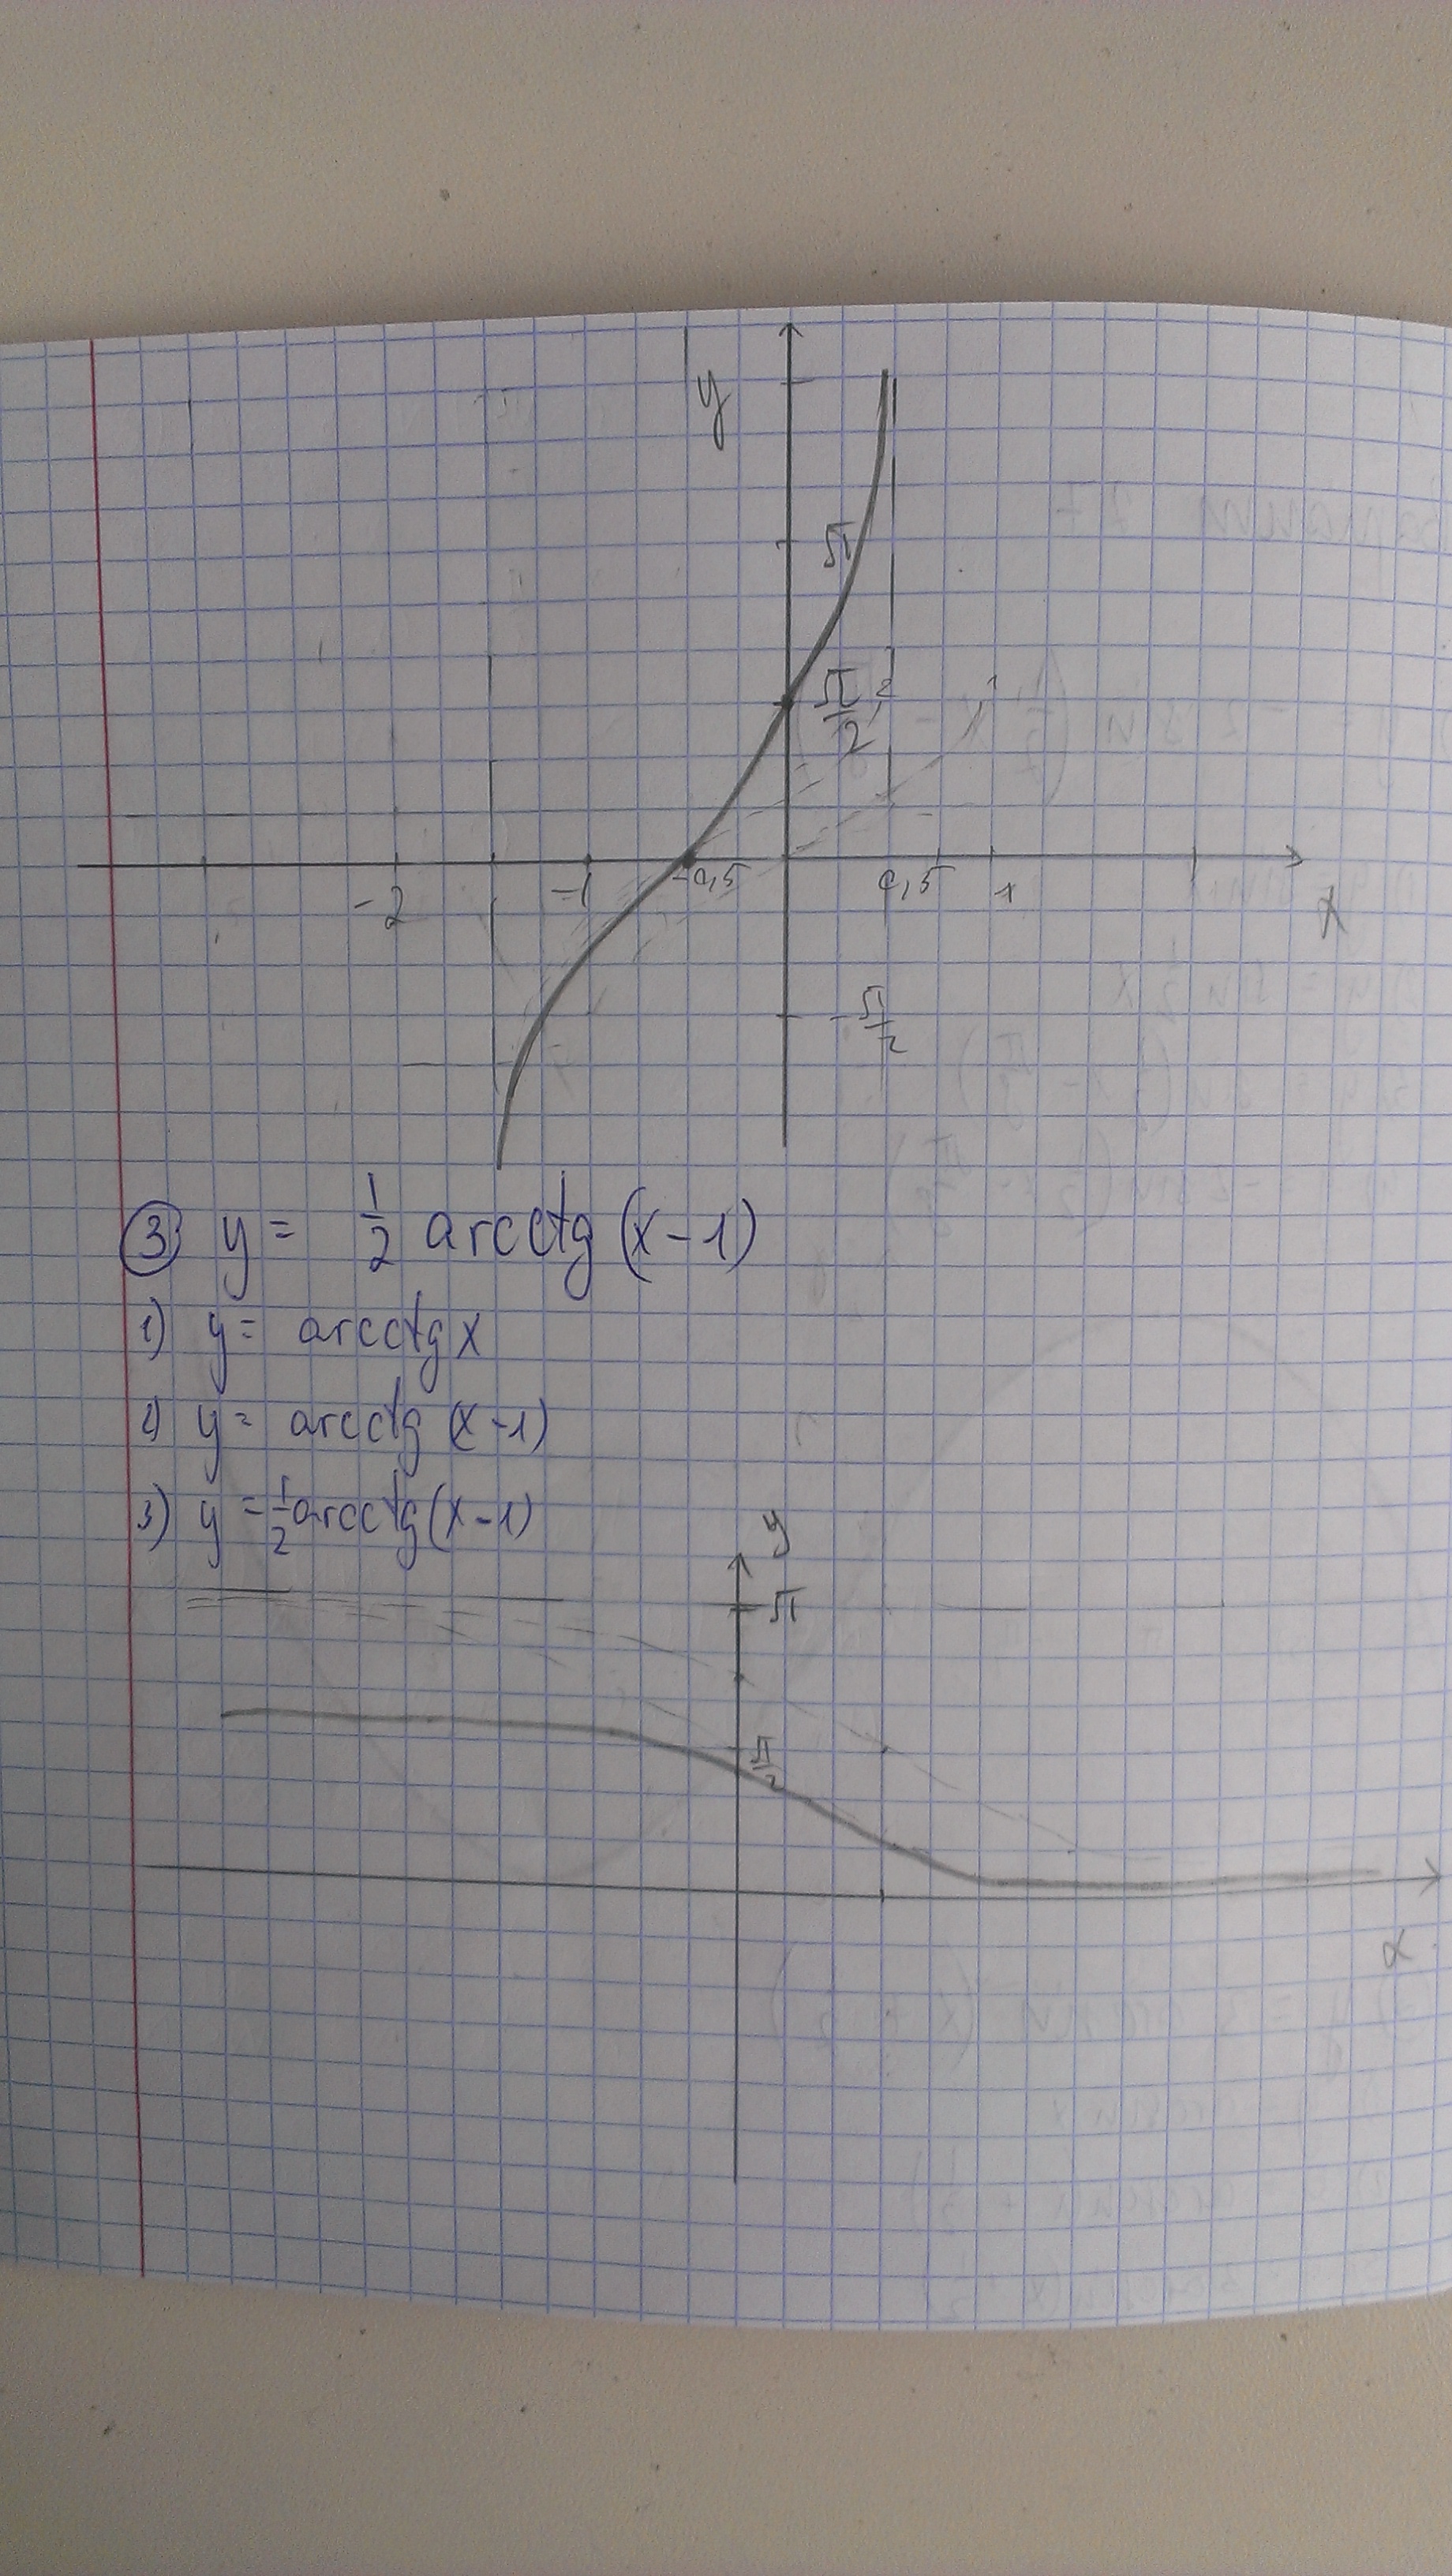 y
π
π/2
-2 -1 -0,5 0,5 1
x
-π/2
③ y = 1/2 arcctg (x-1)
1) y = arcctg x
2) y = arcctg (x-1)
3) y = 1/2 arcctg (x-1)
y
π
π/2
x